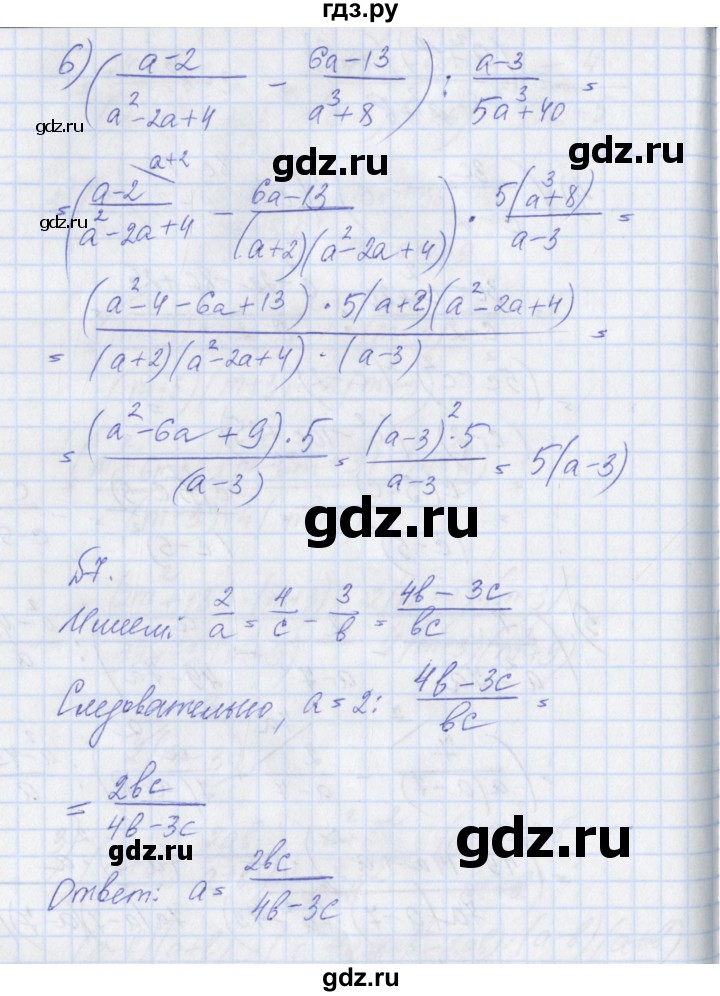 гдз.ру
6) ( (a-2)/(a²-2a+4) - (6a-13)/(a³+8) ) : (a-3)/(5a³+40) =
gdz.ru
gdz.ru
a+2
= ( (a-2)/(a²-2a+4) - (6a-13)/((a+2)(a²-2a+4)) ) · 5(a³+8)/(a-3) =
gdz.ru
= ((a²-4-6a+13)·5(a+2)(a²-2a+4))/((a+2)(a²-2a+4)·(a-3)) =
= ((a²-6a+9)·5)/(a-3) = ((a-3)²·5)/(a-3) = 5(a-3)
gdz.ru
№7.
Имеем: 2/a = 4/c - 3/b = (4b-3c)/(bc)
Следовательно, a = 2 : (4b-3c)/(bc) =
= 2bc/(4b-3c)
gdz.ru
gdz.ru
Ответ: a = 2bc/(4b-3c)
gdz.ru